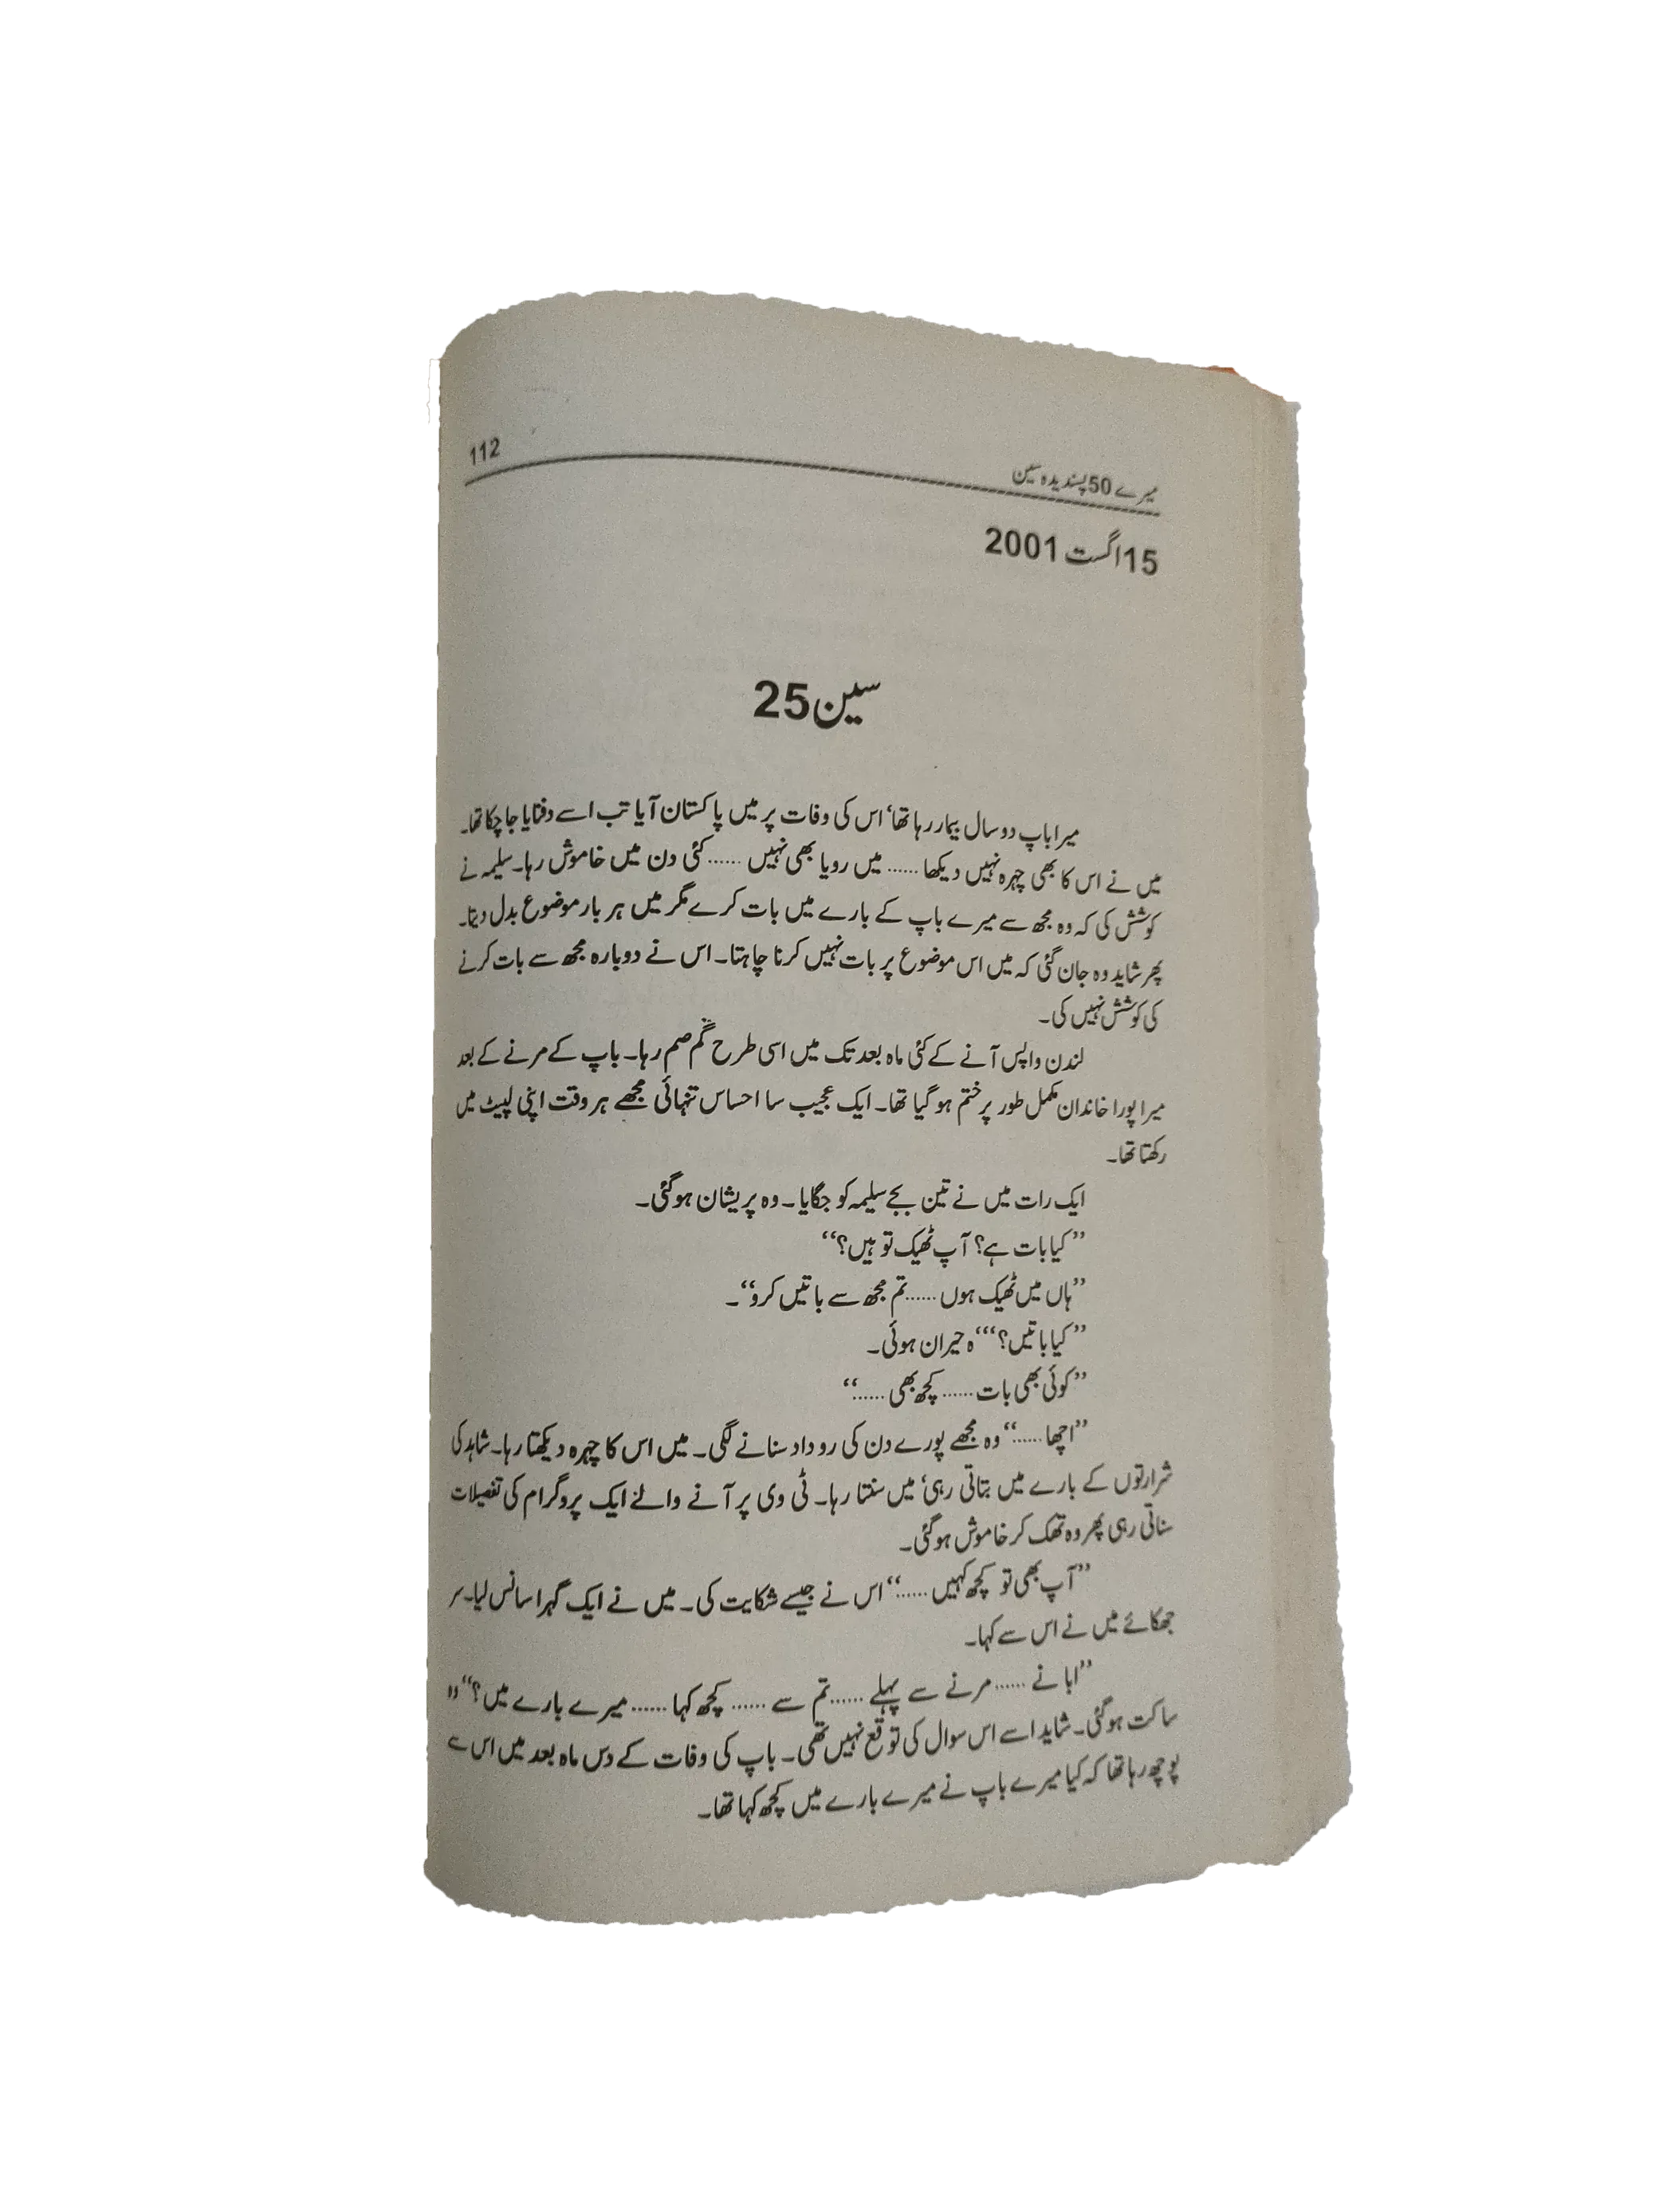 میرے 50 پسندیدہ سین
112
15 اگست 2001
سین 25
میرا باپ دو سال بیمار رہا تھا‘ اس کی وفات پر میں پاکستان آیا تب اسے دفنایا جا چکا تھا۔
میں نے اس کا بھی چہرہ نہیں دیکھا ...... میں رویا بھی نہیں ...... کئی دن میں خاموش رہا۔ سلیمہ نے
کوشش کی کہ وہ مجھ سے میرے باپ کے بارے میں بات کرے مگر میں ہر بار موضوع بدل دیتا۔
پھر شاید وہ جان گئی کہ میں اس موضوع پر بات نہیں کرنا چاہتا۔ اس نے دوبارہ مجھ سے بات کرنے
کی کوشش نہیں کی۔
لندن واپس آنے کے کئی ماہ بعد تک میں اسی طرح گم صم رہا۔ باپ کے مرنے کے بعد
میرا پورا خاندان مکمل طور پر ختم ہو گیا تھا۔ ایک عجیب سا احساس تنہائی مجھے ہر وقت اپنی لپیٹ میں
رکھتا تھا۔
ایک رات میں نے تین بجے سلیمہ کو جگایا۔ وہ پریشان ہو گئی۔
’’کیا بات ہے؟ آپ ٹھیک تو ہیں؟‘‘
’’ہاں میں ٹھیک ہوں ...... تم مجھ سے باتیں کرو‘‘۔
’’کیا باتیں؟‘‘‘ہ حیران ہوئی۔
’’کوئی بھی بات ...... کچھ بھی ......‘‘
’’اچھا ......‘‘ وہ مجھے پورے دن کی روداد سنانے لگی۔ میں اس کا چہرہ دیکھتا رہا۔ شاہد کی
شرارتوں کے بارے میں بتاتی رہی‘ میں سنتا رہا۔ ٹی وی پر آنے والے ایک پروگرام کی تفصیلات
سناتی رہی پھر وہ تھک کر خاموش ہو گئی۔
’’آپ بھی تو کچھ کہیں ......‘‘ اس نے جیسے شکایت کی۔ میں نے ایک گہرا سانس لیا۔ سر
جھکائے میں نے اس سے کہا۔
’’ابا نے ...... مرنے سے پہلے ...... تم سے ...... کچھ کہا ...... میرے بارے میں؟‘‘ وہ
ساکت ہو گئی۔ شاید اسے اس سوال کی توقع نہیں تھی۔ باپ کی وفات کے دس ماہ بعد میں اس سے
پوچھ رہا تھا کہ کیا میرے باپ نے میرے بارے میں کچھ کہا تھا۔